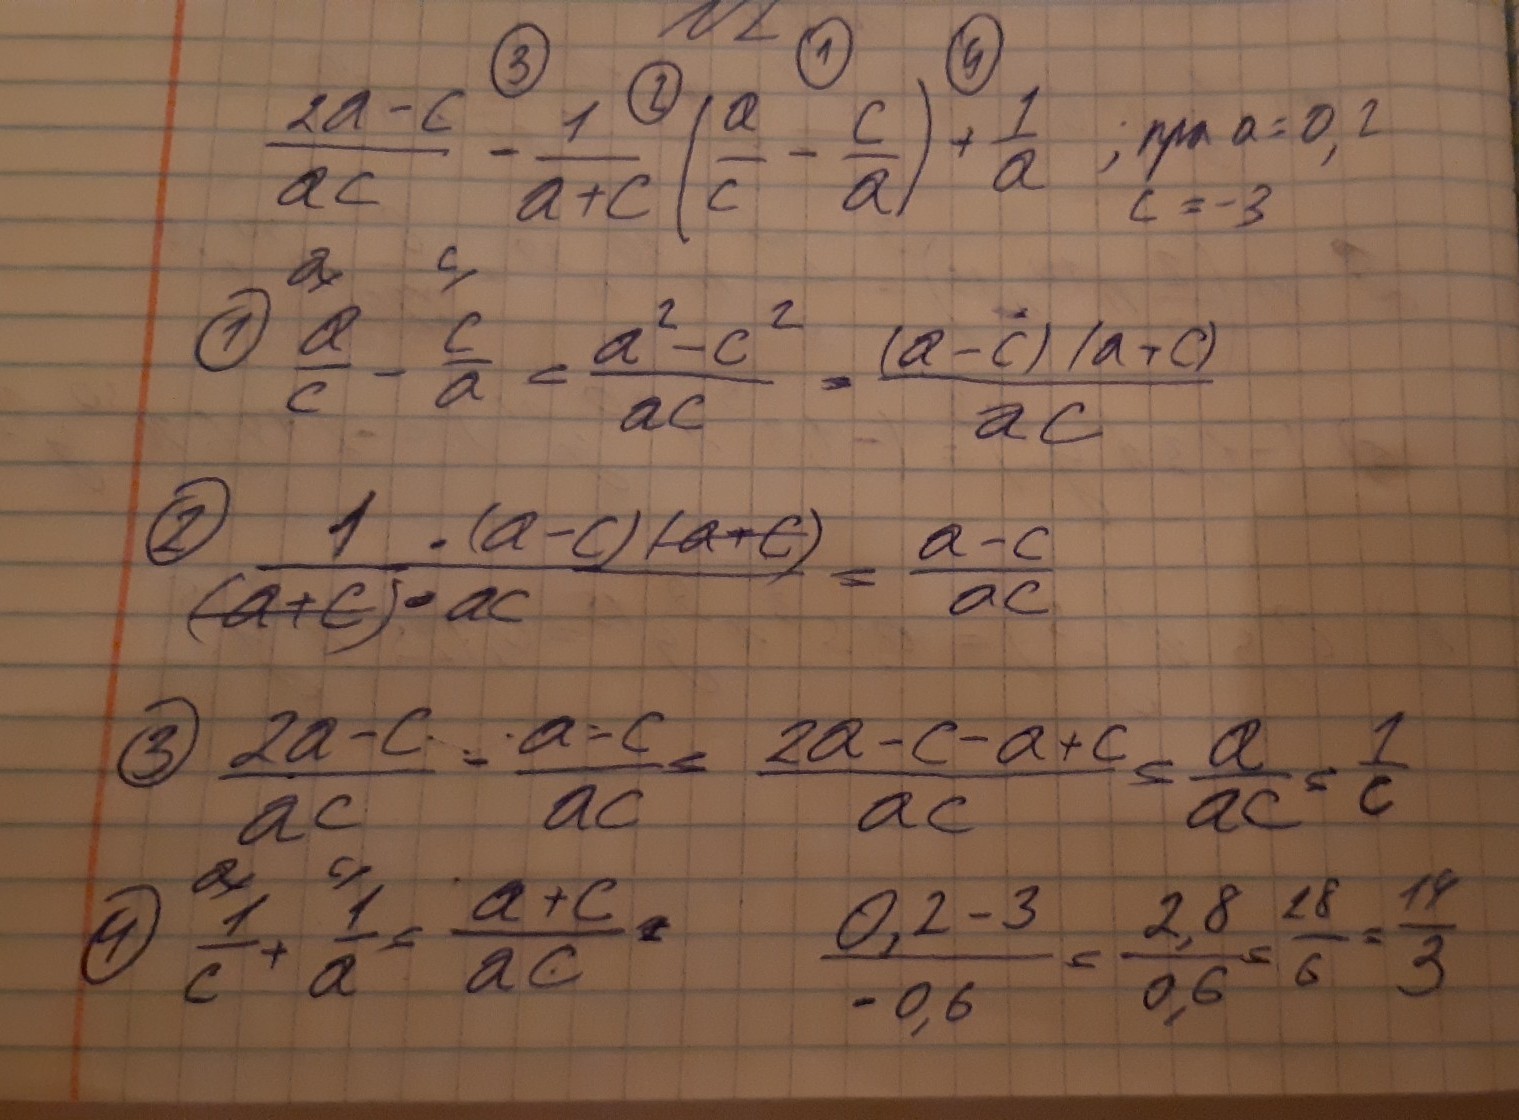 ③ ② ① ④
(2a-c)/(ac) - 1/(a+c) (a/c - c/a) + 1/a ; при a=0,2
c=-3
① a/c - c/a = (a²-c²)/(ac) = ((a-c)(a+c))/(ac)
② (1·(a-c)(a+c))/((a+c)·ac) = (a-c)/(ac)
③ (2a-c)/(ac) - (a-c)/(ac) = (2a-c-a+c)/(ac) = a/(ac) = 1/c
④ 1/c + 1/a = (a+c)/(ac) = (0,2-3)/(-0,6) = 2,8/0,6 = 28/6 = 14/3